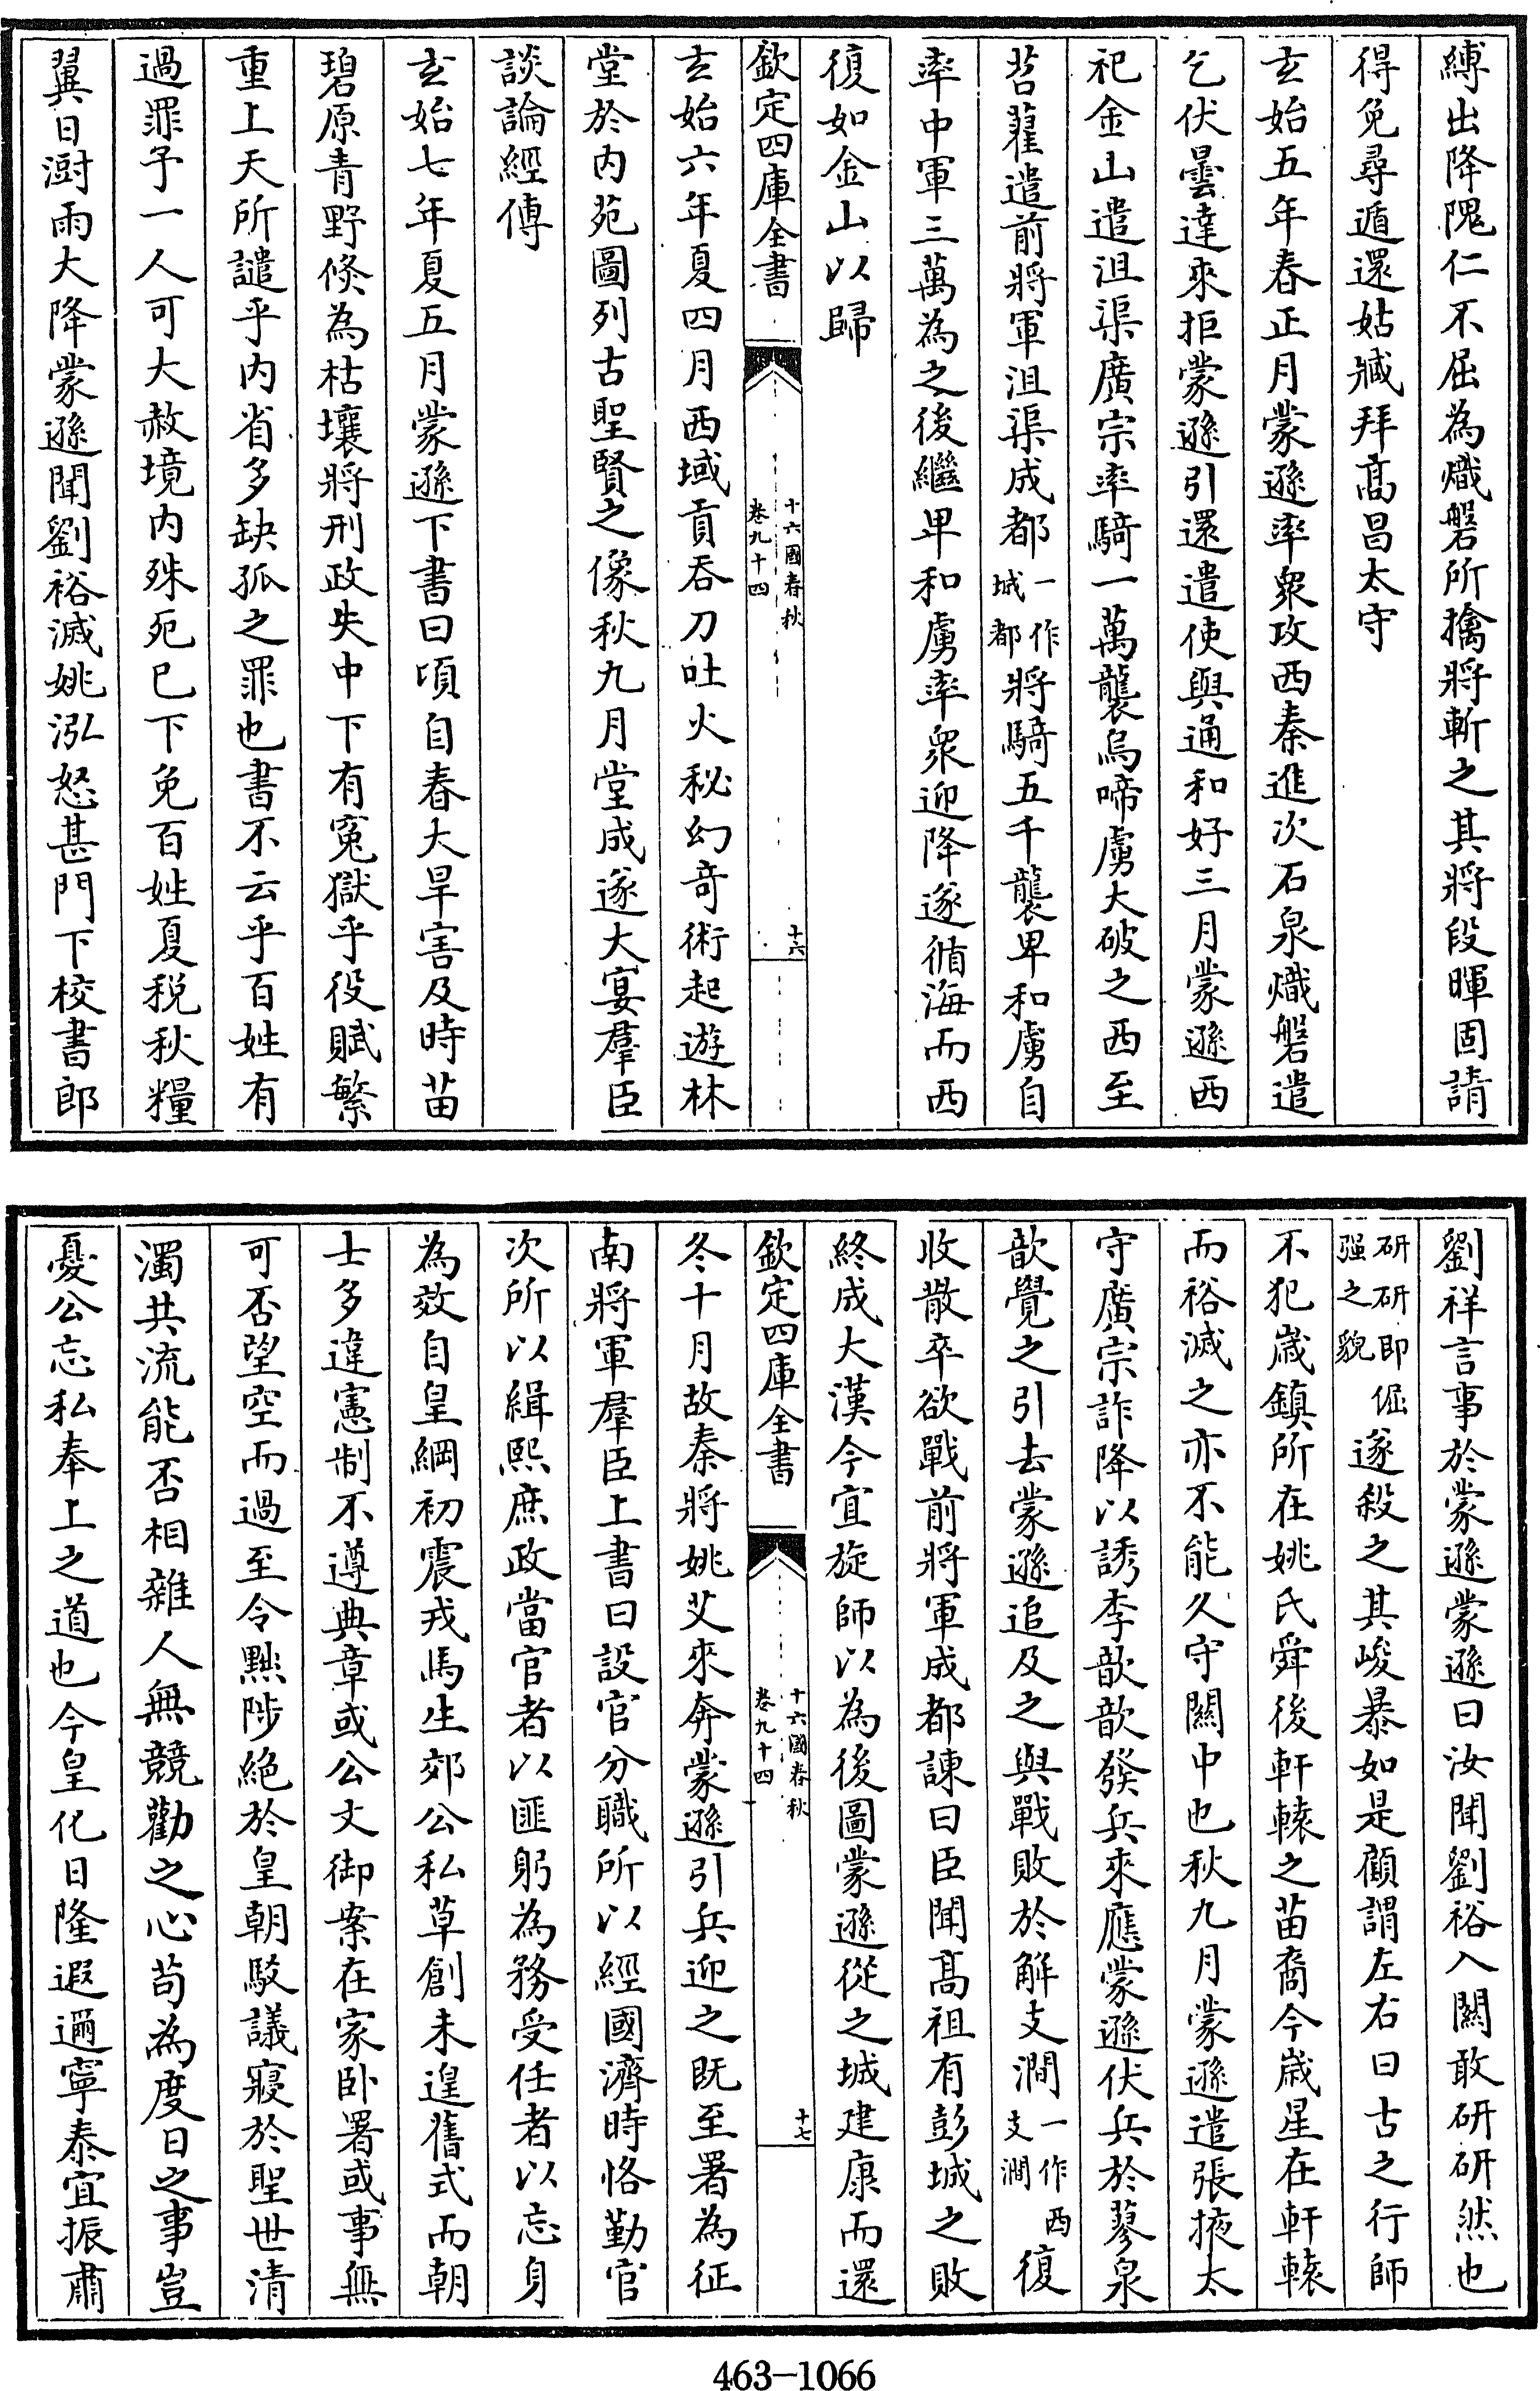 縛出降隗仁不屈為熾磐所擒將斬之其將段暉固請
得免尋遁還姑臧拜髙昌太守
玄始五年春正月蒙遜率衆攻西秦進次石泉熾磐遣
乞伏曇達來拒蒙遜引還遣使與通和好三月蒙遜西
祀金山遣沮渠廣宗率騎一萬襲烏啼虜大破之西至
苕藋遣前將軍沮渠成都一作城都將騎五千襲卑和虜自
率中軍三萬為之後繼卑和虜率衆迎降遂循海而西
復如金山以歸
欽定四庫全書
十六國春秋
卷九十四
十六
玄始六年夏四月西域貢吞刀吐火秘幻竒術起遊林
堂於内苑圖列古聖賢之像秋九月堂成遂大宴羣臣
談論經傳
玄始七年夏五月蒙遜下書曰頃自春大旱害及時苗
碧原青野倐為枯壤將刑政失中下有寃獄乎役賦繁
重上天所譴乎内省多缺孤之罪也書不云乎百姓有
過罪予一人可大赦境内殊死已下免百姓夏税秋糧
翼日澍雨大降蒙遜聞劉裕滅姚泓怒甚門下校書郎
劉祥言事於蒙遜蒙遜曰汝聞劉裕入關敢研研然也
研研即倔强之貌遂殺之其峻暴如是顧謂左右曰古之行師
不犯嵗鎮所在姚氏舜後軒轅之苗裔今嵗星在軒轅
而裕滅之亦不能久守關中也秋九月蒙遜遣張掖太
守廣宗詐降以誘李歆歆發兵來應蒙遜伏兵於蓼泉
歆覺之引去蒙遜追及之與戰敗於解支澗一作西支澗復
收散卒欲戰前將軍成都諫曰臣聞髙祖有彭城之敗
終成大漢今宜旋師以為後圖蒙遜從之城建康而還
欽定四庫全書
十六國春秋
卷九十四
十七
冬十月故秦將姚艾來奔蒙遜引兵迎之既至署為征
南將軍羣臣上書曰設官分職所以經國濟時恪勤官
次所以緝熙庶政當官者以匪躬為務受任者以忘身
為效自皇綱初震戎馬生郊公私草創未遑舊式而朝
士多違憲制不遵典章或公文御案在家卧署或事無
可否望空而過至令黜陟絶於皇朝駮議寢於聖世清
濁共流能否相雜人無競勸之心苟為度日之事豈
憂公忘私奉上之道也今皇化日隆遐邇寧泰宜振肅
463-1066